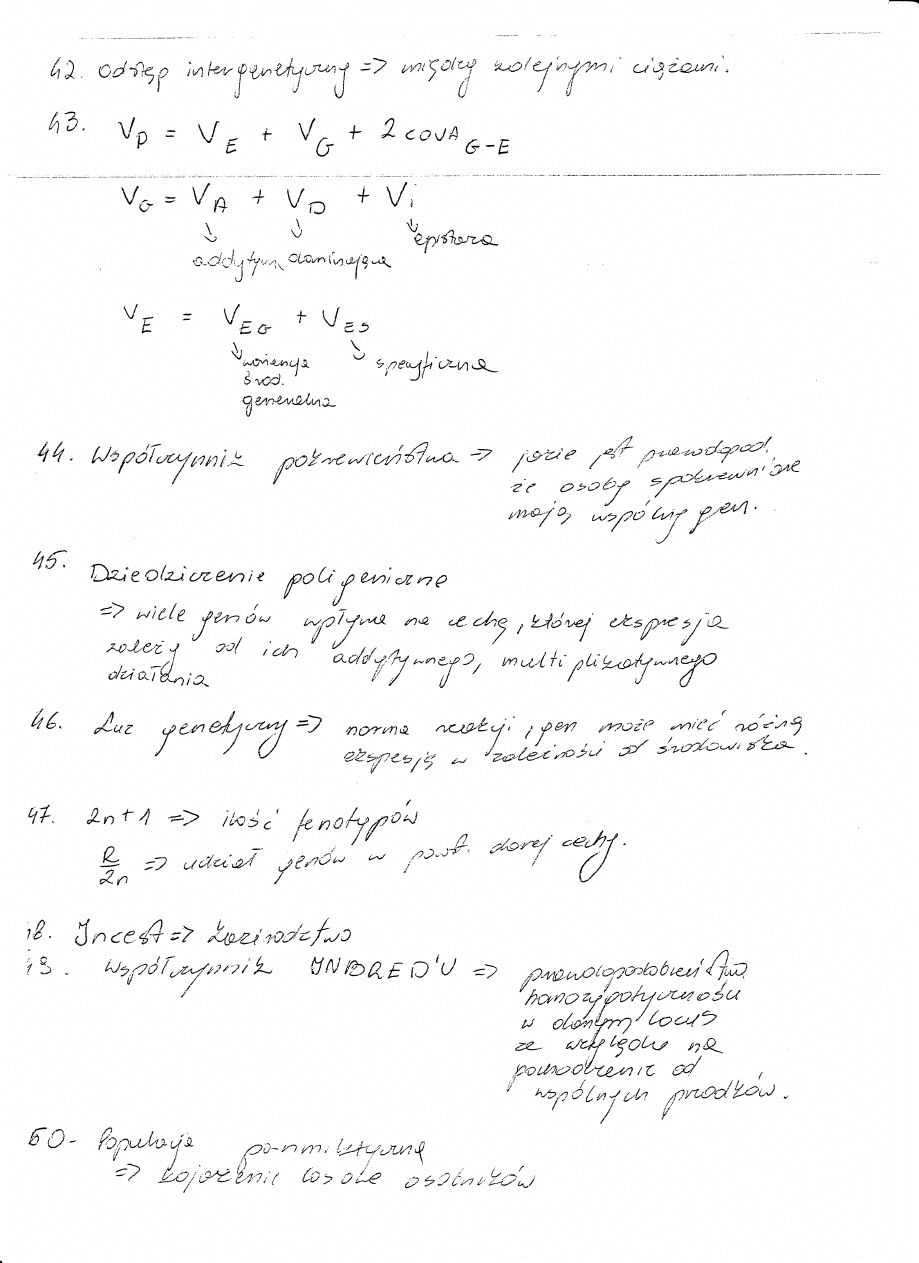 42. Odstęp intergenetyczny => między kolejnymi ciążami.
43. V_P = V_E + V_G + 2 COVA_G-E
V_G = V_A + V_D + V_i
epistaza
addytyw. dominująca
V_E = V_EG + V_ES
wariancja specyficzna
środ.
generalna
44. Współczynnik pokrewieństwa => jakie jest prawdopod.
że osoby spokrewnione
mają wspólny gen.
45. Dziedziczenie poligeniczne
=> wiele genów wpływa na cechę, której ekspresja
zależy od ich addytywnego, multiplikatywnego
działania
46. Luz genetyczny => norma reakcji, gen może mieć różną
ekspesję w zależności od środowiska.
47. 2n+1 => ilość fenotypów
R/2n => udział genów w powst. danej cechy.
48. Incest => kazirodztwo
49. Współczynnik INBRED'U => prawdopodobieństwo
homozygotyczności
w danym locus
ze względu na
pochodzenie od
wspólnych przodków.
50- Populacja panmiktyczna
=> kojarzenie losowe osobników